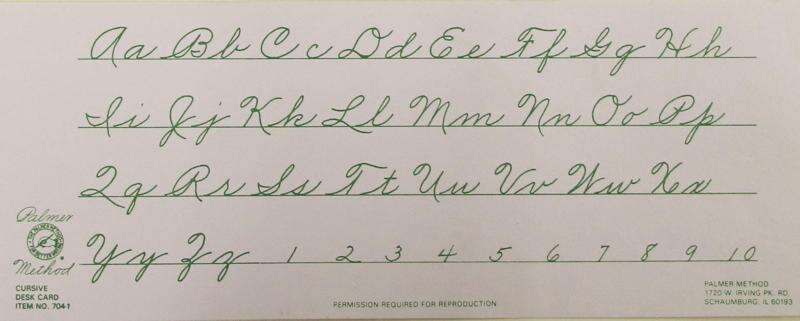 Aa Bb Cc Dd Ee Ff Gg Hh
Ii Jj Kk Ll Mm Nn Oo Pp
Qq Rr Ss Tt Uu Vv Ww Xx
Yy Zz 1 2 3 4 5 6 7 8 9 10
Palmer
Method
CURSIVE
DESK CARD
ITEM NO. 704-1
PERMISSION REQUIRED FOR REPRODUCTION
PALMER METHOD
1720 W. IRVING PK. RD.
SCHAUMBURG, IL 60193